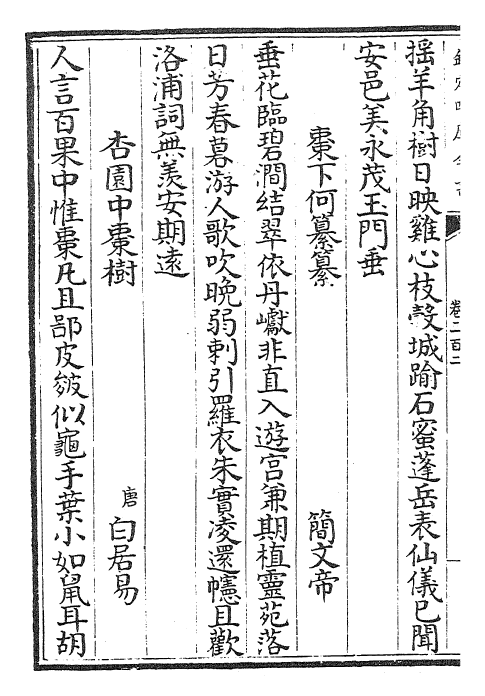 欽定四庫全書
卷二百二
揺羊角樹日映雞心枝穀城踰石蜜蓬岳表仙儀已聞
安邑美永茂玉門垂
棗下何纂纂 簡文帝
垂花臨碧澗結翠依丹巘非直入遊宫兼期植靈苑落
日芳春暮游人歌吹晩弱刺引羅衣朱實凌還幰且歡
洛浦詞無羡安期遠
杏園中棗樹 唐白居易
人言百果中惟棗凡且鄙皮皴似龜手葉小如鼠耳胡